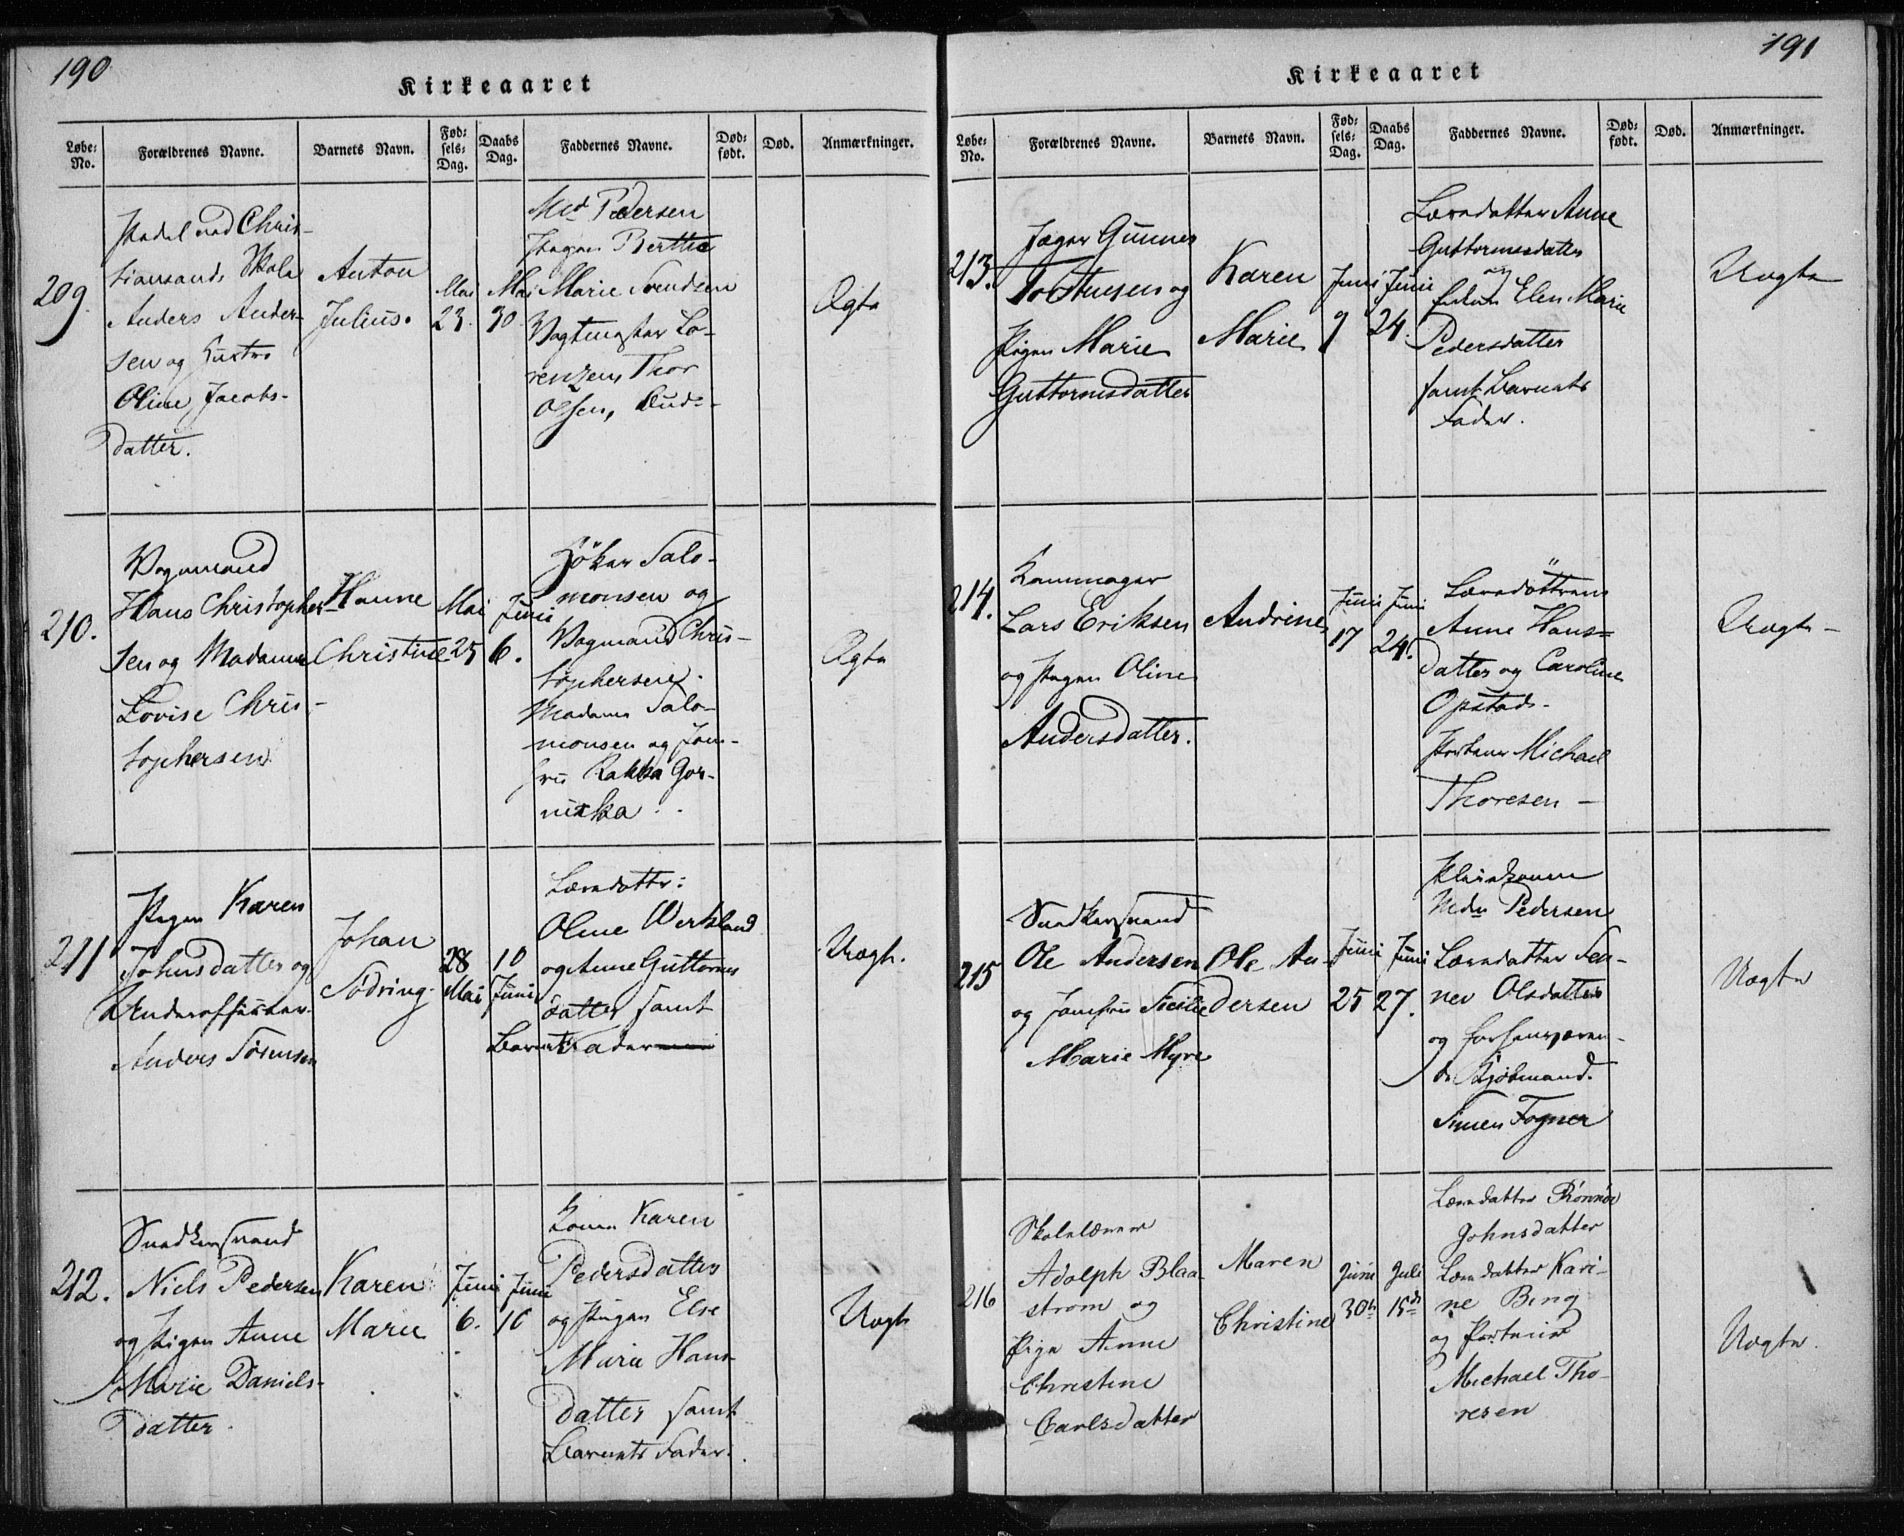 190
Kirkeaaret
Løbe-No. Forældrenes Navne. Barnets Navn. Fødsels-Dag. Daabs Dag. Faddernes Navne. Dødfødt. Død. Anmærkninger.
209.
ved Chris-
tiansands Skole
Anders Ander-
sen og Hustro
Oline Jacobs-
datter.
Anton
Julius.
Mai
23.
Mai
30
Md Pedersen
Pigen Berthe
Marie Svendsen
Vagtmester Lo-
renzen, Thor
Olsen,
Ægte
210.
Vognmand
Hans Christopher-
sen og Madame
Lovise Chris-
tophersen
Hanne
Christine
Mai
25
Juni
6.
Höker Salo-
monsen og
Vogmand Chris-
tophersen.
Madame Salo-
monsen og Jom-
fru Kakka Gor-
nitzka
Ægte
211
Pigen Karen
Johnsdatter og
Underofficier
Anders Sörensen
Johan
Södring.
28
Mai
10
Juni
Læredattr:
Oline Werkland
og Anne Guttorms
datter samt
Barnets Fader
Uægt.
212.
Snedkersvend
Niels Pedersen
og Pigen Anne
Marie Daniels-
datter.
Karen
Marie
Juni
6.
Juni
16
Kone Karen
Pedersdatter
og Pigen Else
Marie Hans-
datter samt
Barnets Fader.
Uægt
191
Kirkeaaret
Løbe-No. Forældrenes Navne. Barnets Navn. Fødsels-Dag. Daabs Dag. Faddernes Navne. Dødfødt. Død. Anmærkninger.
213.
Jæger Gunnes
og
Pigen Marie
Guttormsdatter
Karen
Marie
Juni
9
Juni
24.
Læredatter Anne
Guttormsdatter
og
Elen Marie
Pedersdatter
samt Barnets
Fader.
Uægte
214.
Kammager
Lars Eriksen
og Pigen Oline
Andersdatter.
Andrine
Juni
17
Juni
24.
Læredöttrene
Anne Hans-
datter og Caroline
Opstad-
Portner Michael
Thoresen -
Uægte -
215
Snedkersvend
Ole Andersen
og Jomfru Sicilie
Marie Myre
Ole An-
dersen
Juni
25
Juni
27.
Pleiekonen
Mdm Pedersen
Læredatter Gun-
ner Olsdatter
og forhenværen-
de Kjöbmand.
Simen Fogner
Uægte
216
Skolelærer
Adolph Blaa-
strom og
Pige Anne
Christine
Carlsdatter
Maren
Christine
Juni
30te
Juli
15de
Læredatter Rönnöv
Johnsdatter
Læredatter Kari-
ne Bing
og Portneir
Michael Tho-
resen
Uægte.